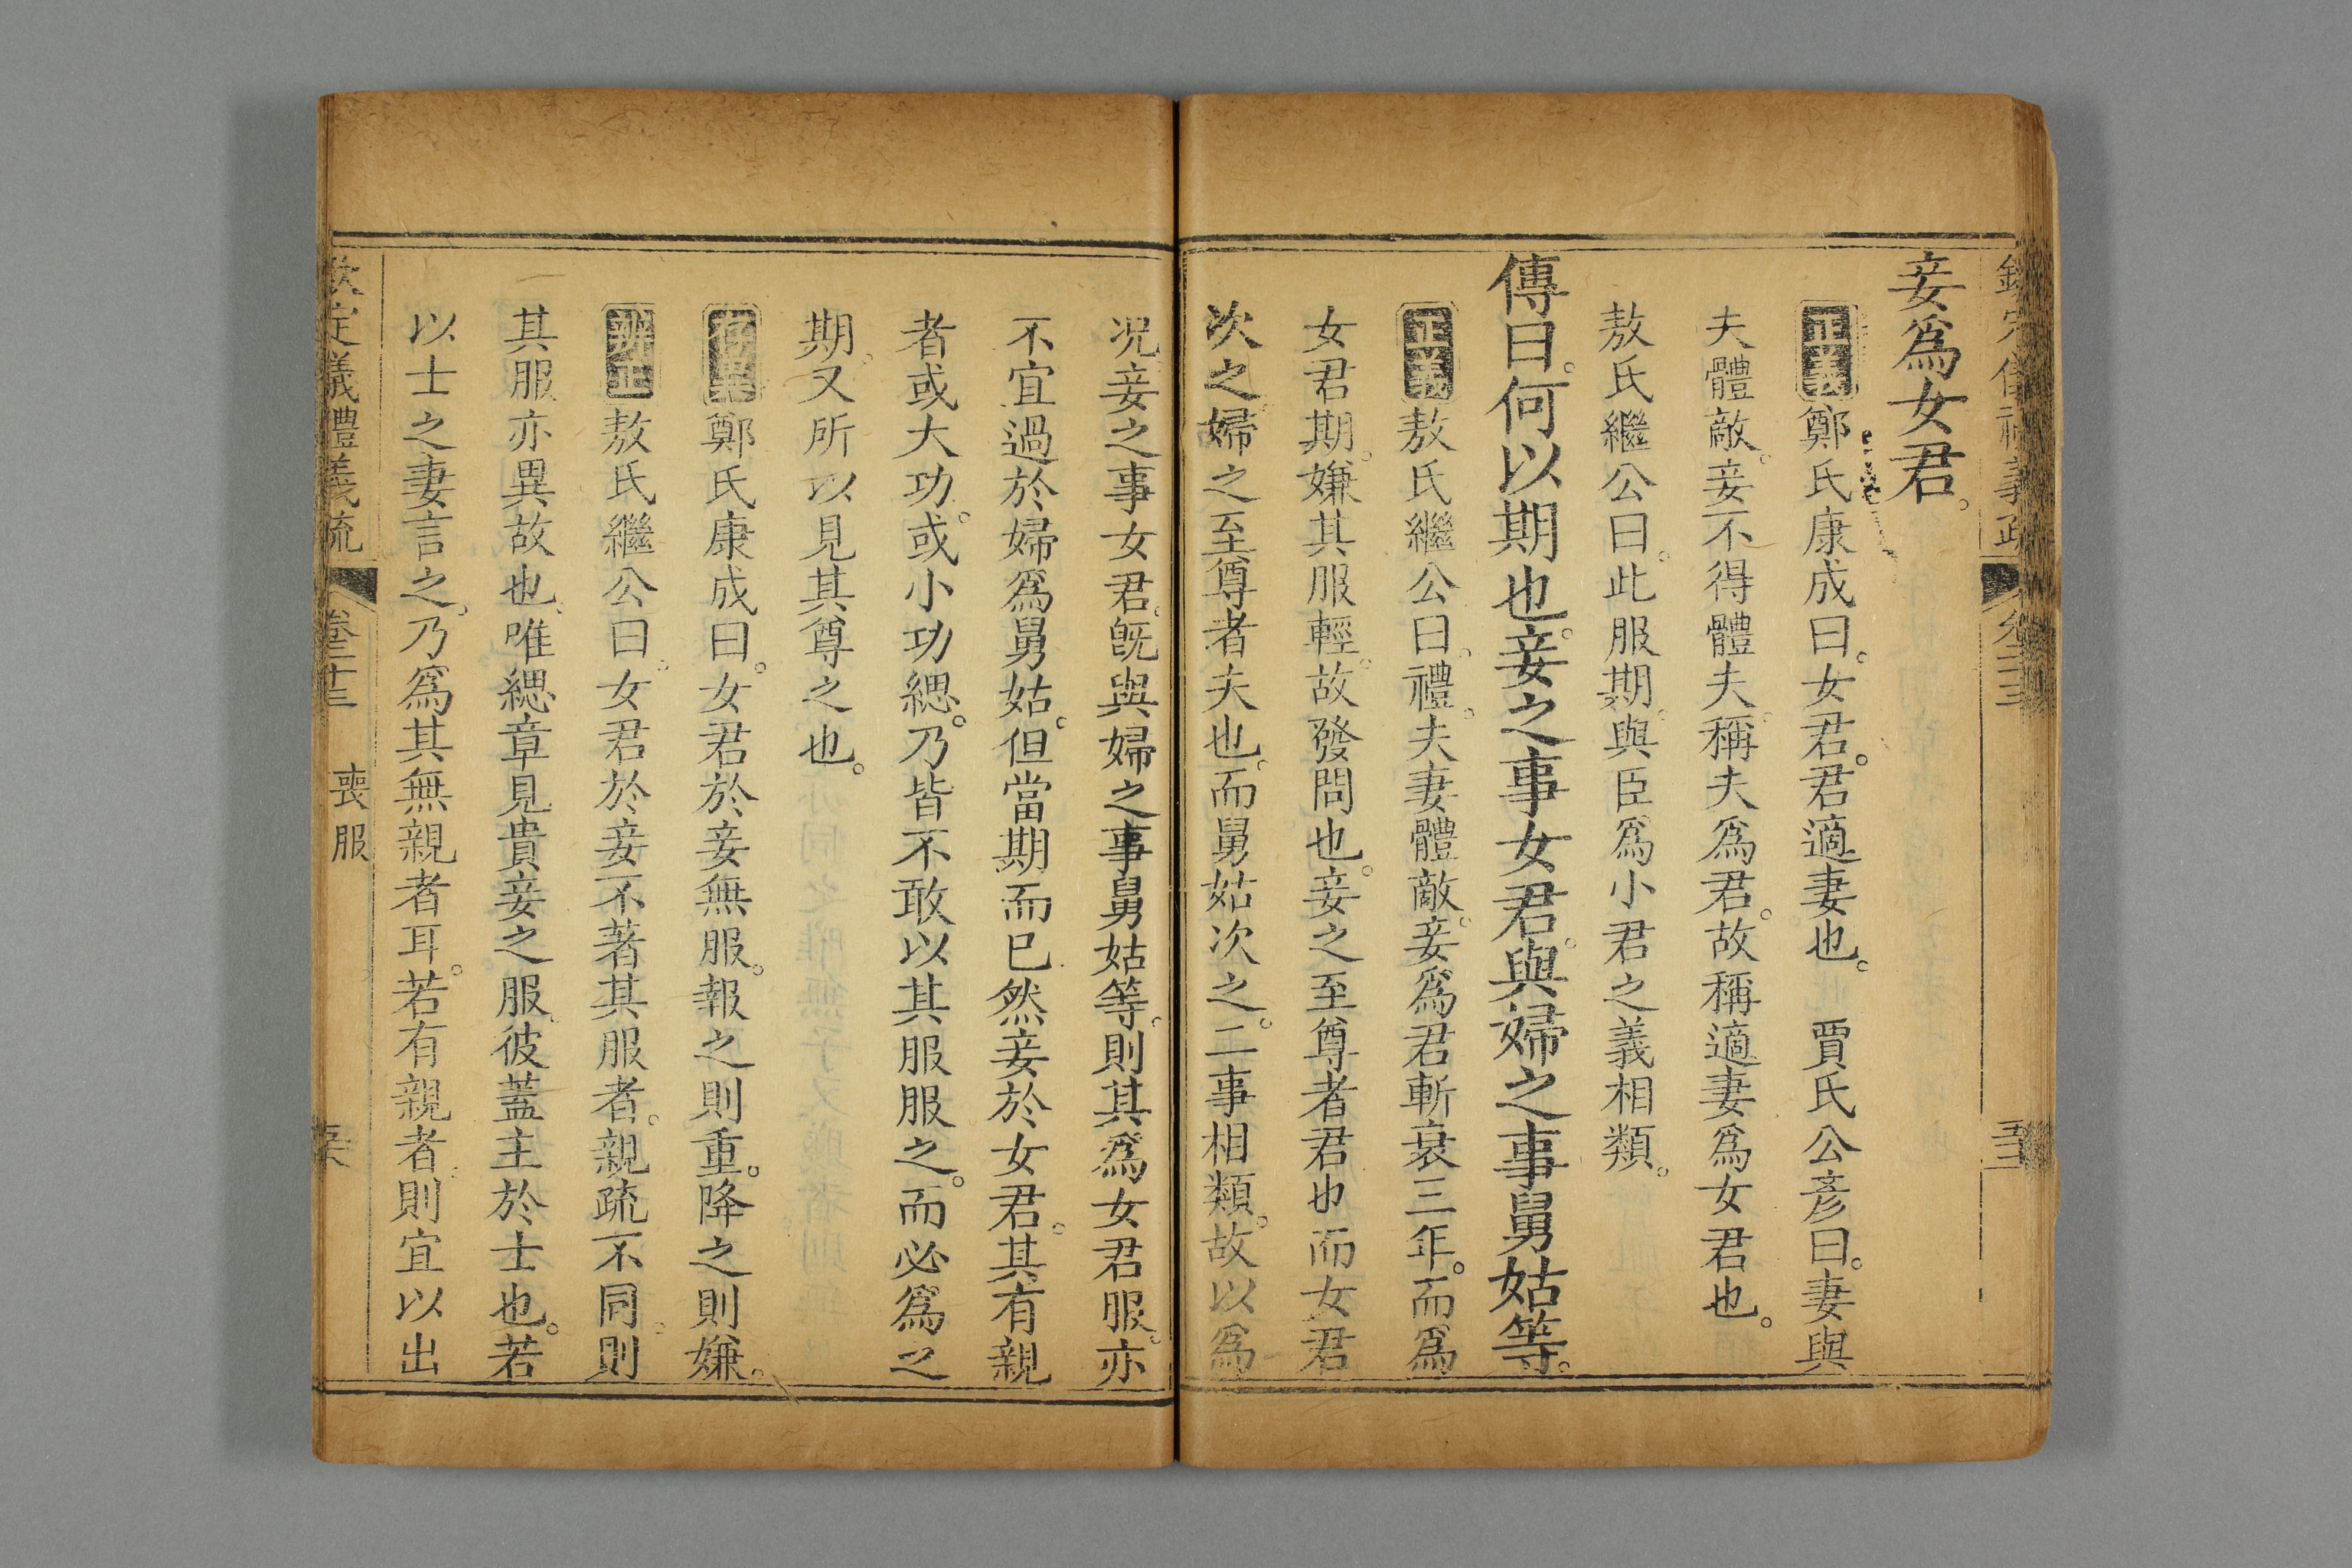 妾爲女君。
正義鄭氏康成曰。女君。君適妻也。 賈氏公彥曰。妻與
夫體敵。妾不得體夫。稱夫爲君。故稱適妻爲女君也。
敖氏繼公曰。此服期。與臣爲小君之義相類。
傳曰。何以期也。妾之事女君。與婦之事舅姑等。
正義敖氏繼公曰。禮。夫妻體敵。妾爲君斬衰三年。而爲
女君期。嫌其服輕。故發問也。妾之至尊者君也而女君
次之。婦之至尊者夫也。而舅姑次之。二事相類。故以爲
况妾之事女君。旣與婦之事舅姑等。則其爲女君服。亦
不宜過於婦爲舅姑。但當期而已然妾於女君。其有親
者或大功。或小功緦。乃皆不敢以其服服之。而必爲之
期。又所以見其尊之也。
存異鄭氏康成曰。女君於妾無服。報之則重。降之則嫌。
辨正敖氏繼公曰。女君於妾不著其服者。親疏不同。則
其服亦異故也。唯緦章見貴妾之服。彼蓋主於士也。若
以士之妻言之。乃爲其無親者耳。若有親者。則宜以出
欽定儀禮義疏 卷二十三 喪服